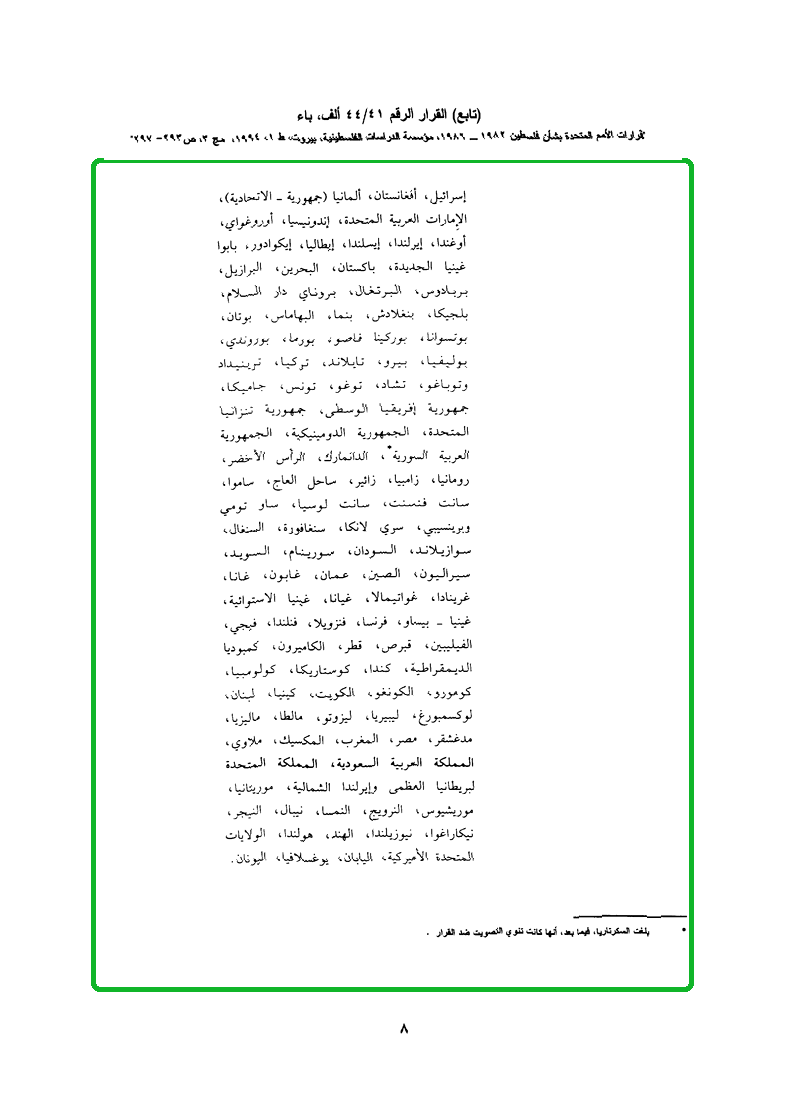 (تابع) القرار الرقم ٤٤/٤١ ألف، باء
قرارات الأمم المتحدة بشأن فلسطين ١٩٨٢ ــ ١٩٨٦، مؤسسة الدراسات الفلسطينية، بيروت، ط ١، ١٩٩٤، مج ٣، ص ٢٩٣- ٢٩٧.
إسرائيل، أفغانستان، ألمانيا (جمهورية ـ الاتحادية)،
الإمارات العربية المتحدة، إندونيسيا، أوروغواي،
أوغندا، إيرلندا، إيسلندا، إيطاليا، إيكوادور، بابوا
غينيا الجديدة، باكستان، البحرين، البرازيل،
بربادوس، البرتغال، بروناي دار السلام،
بلجيكا، بنغلادش، بنما، البهاماس، بوتان،
بوتسوانا، بوركينا فاصو، بورما، بوروندي،
بوليفيا، بيرو، تايلاند، تركيا، ترينيداد
وتوباغو، تشاد، توغو، تونس، جاميكا،
جمهورية إفريقيا الوسطى، جمهورية تنزانيا
المتحدة، الجمهورية الدومينيكية، الجمهورية
العربية السورية*، الدانمارك، الرأس الأخضر،
رومانيا، زامبيا، زائير، ساحل العاج، ساموا،
سانت فنسنت، سانت لوسيا، ساو تومي
وبرينسيبي، سري لانكا، سنغافورة، السنغال،
سوازيلاند، السودان، سورينام، السويد،
سيراليون، الصين، عمان، غابون، غانا،
غرينادا، غواتيمالا، غيانا، غينيا الاستوائية،
غينيا ـ بيساو، فرنسا، فنزويلا، فنلندا، فيجي،
الفيليبين، قبرص، قطر، الكاميرون، كمبوديا
الديمقراطية، كندا، كوستاريكا، كولومبيا،
كومورو، الكونغو، الكويت، كينيا، لبنان،
لوكسمبورغ، ليبيريا، ليزوتو، مالطا، ماليزيا،
مدغشقر، مصر، المغرب، المكسيك، ملاوي،
المملكة العربية السعودية، المملكة المتحدة
لبريطانيا العظمى وإيرلندا الشمالية، موريتانيا،
موريشيوس، النرويج، النمسا، نيبال، النيجر،
نيكاراغوا، نيوزيلندا، الهند، هولندا، الولايات
المتحدة الأميركية، اليابان، يوغسلافيا، اليونان.
* بلغت السكرتاريا، فيما بعد، أنها كانت تنوي التصويت ضد القرار .
٨